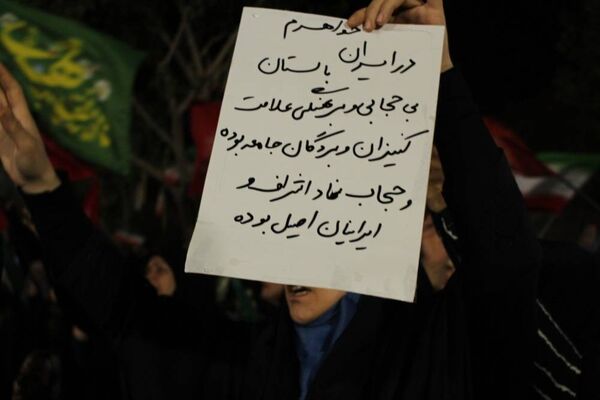 خواهرم
در ایران باستان
بی حجابی و برهنگی علامت
کنیزان و بردگان جامعه بوده
و حجاب نماد اشراف و
ایرانیان اصیل بوده